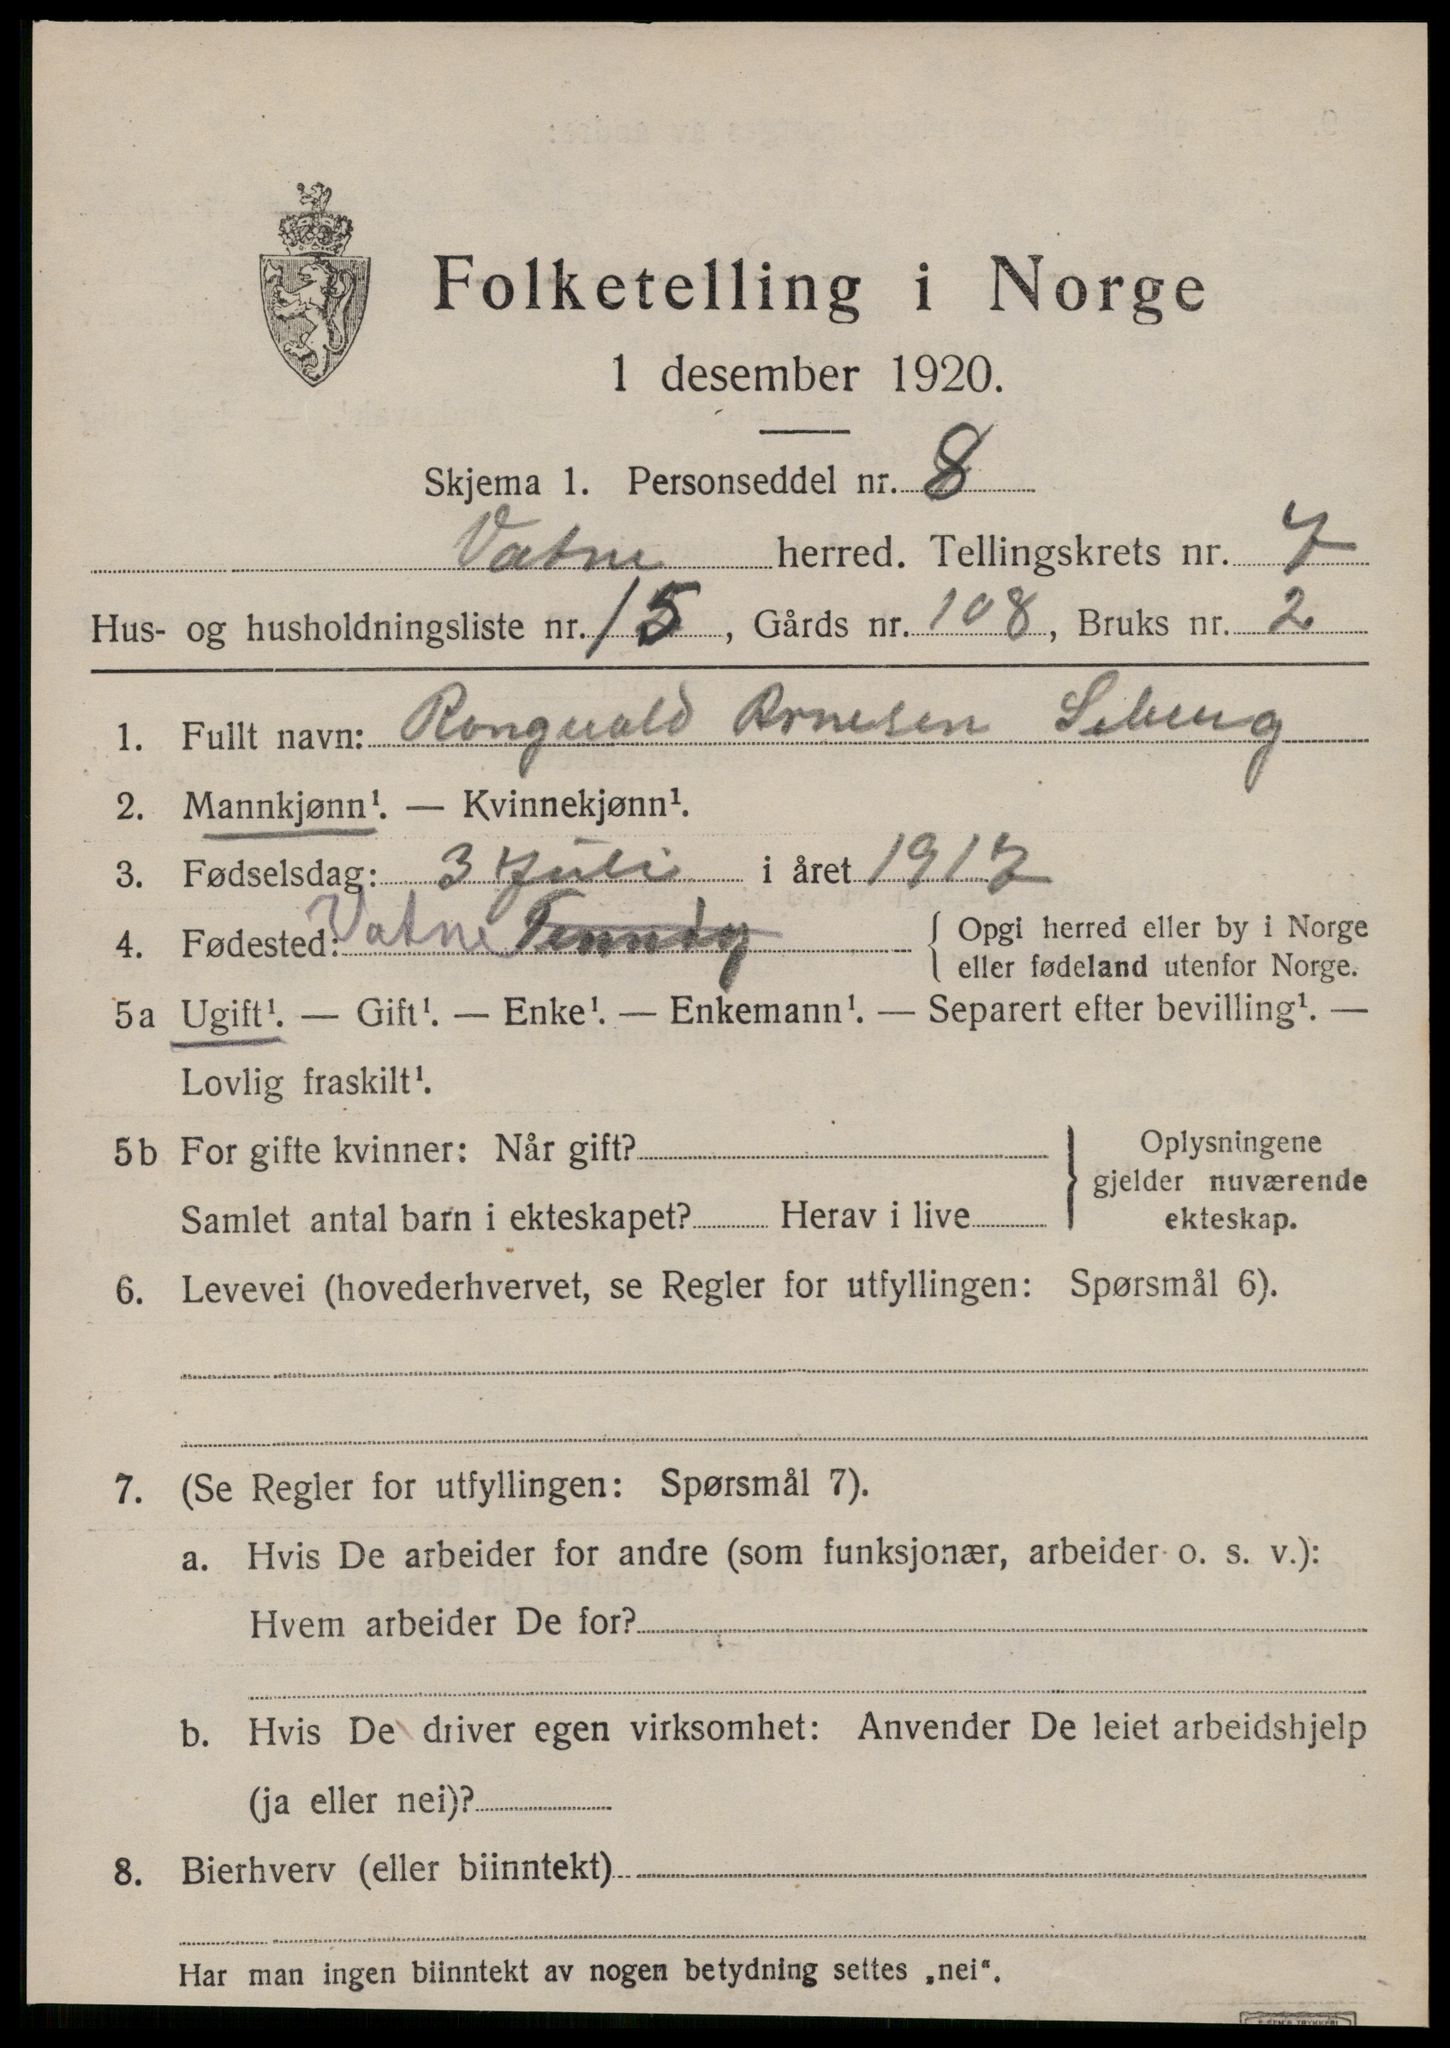 Folketelling i Norge
1 desember 1920.
Skjema 1. Personseddel nr. 8
Vatne herred. Tellingskrets nr. 7
Hus- og husholdningsliste nr. 15, Gårds nr. 108, Bruks nr. 2
1. Fullt navn: Rangvald Arnesen
2. Mannkjønn¹. — Kvinnekjønn¹.
3. Fødselsdag: 3 Juli i året 1917
4. Fødested: Vatne Tennöy { Opgi herred eller by i Norge
eller fødeland utenfor Norge.
5a Ugift¹. — Gift¹. — Enke¹. — Enkemann¹. — Separert efter bevilling¹. —
Lovlig fraskilt¹.
5b For gifte kvinner: Når gift?
Samlet antal barn i ekteskapet? Herav i live
} Oplysningene
gjelder nuværende
ekteskap.
6. Levevei (hovederhvervet, se Regler for utfyllingen: Spørsmål 6).
7. (Se Regler for utfyllingen: Spørsmål 7).
a. Hvis De arbeider for andre (som funksjonær, arbeider o. s. v.):
Hvem arbeider De for?
b. Hvis De driver egen virksomhet: Anvender De leiet arbeidshjelp
(ja eller nei)?
8. Bierhverv (eller biinntekt)
Har man ingen biinntekt av nogen betydning settes „nei“.